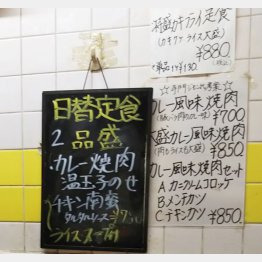 日替定食
2品盛
カレー焼肉
温玉子のせ
チキン南蛮
タルタルソース
¥750
特盛カキフライ定食
(カキフライ ライス大盛)
¥880
単品 ¥730
カレー風味焼肉
¥700
大盛カレー風味焼肉
¥850
カレー風味焼肉セット
A カニクリームコロッケ
B メンチカツ
C チキンカツ
¥850